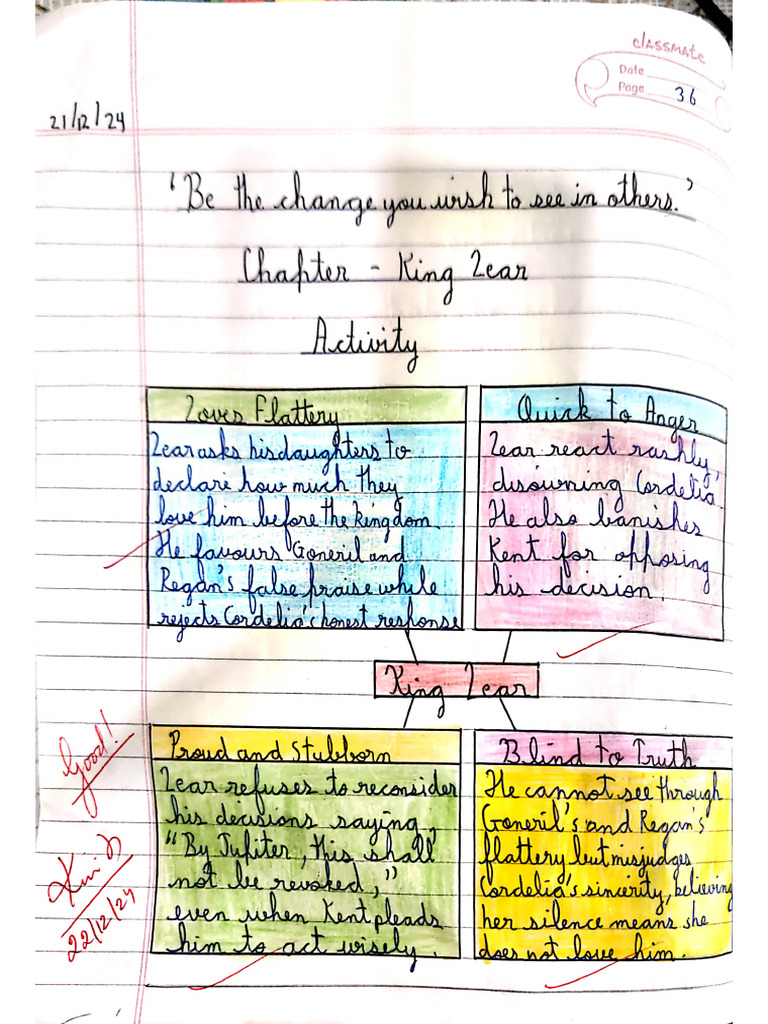 classmate
Date
Page 36
21/12/24
'Be the change you wish to see in others.'
Chapter - King Lear
Activity
Loves Flattery
Lear asks his daughters to
declare how much they
love him before the kingdom.
He favours Goneril and
Regan's false praise while
rejects Cordelia's honest response
Quick to Anger
Lear react rashly,
disowning Cordelia.
He also banishes
Kent for opposing
his decision.
King Lear
Proud and Stubborn
Lear refuses to reconsider
his decisions saying,
"By Jupiter, this shall
not be revoked,"
even when Kent pleads
him to act wisely.
Blind to Truth
He cannot see through
Goneril's and Regan's
flattery but misjudges
Cordelia's sincerity, believing
her silence means she
does not love him.
Good!
22/12/24